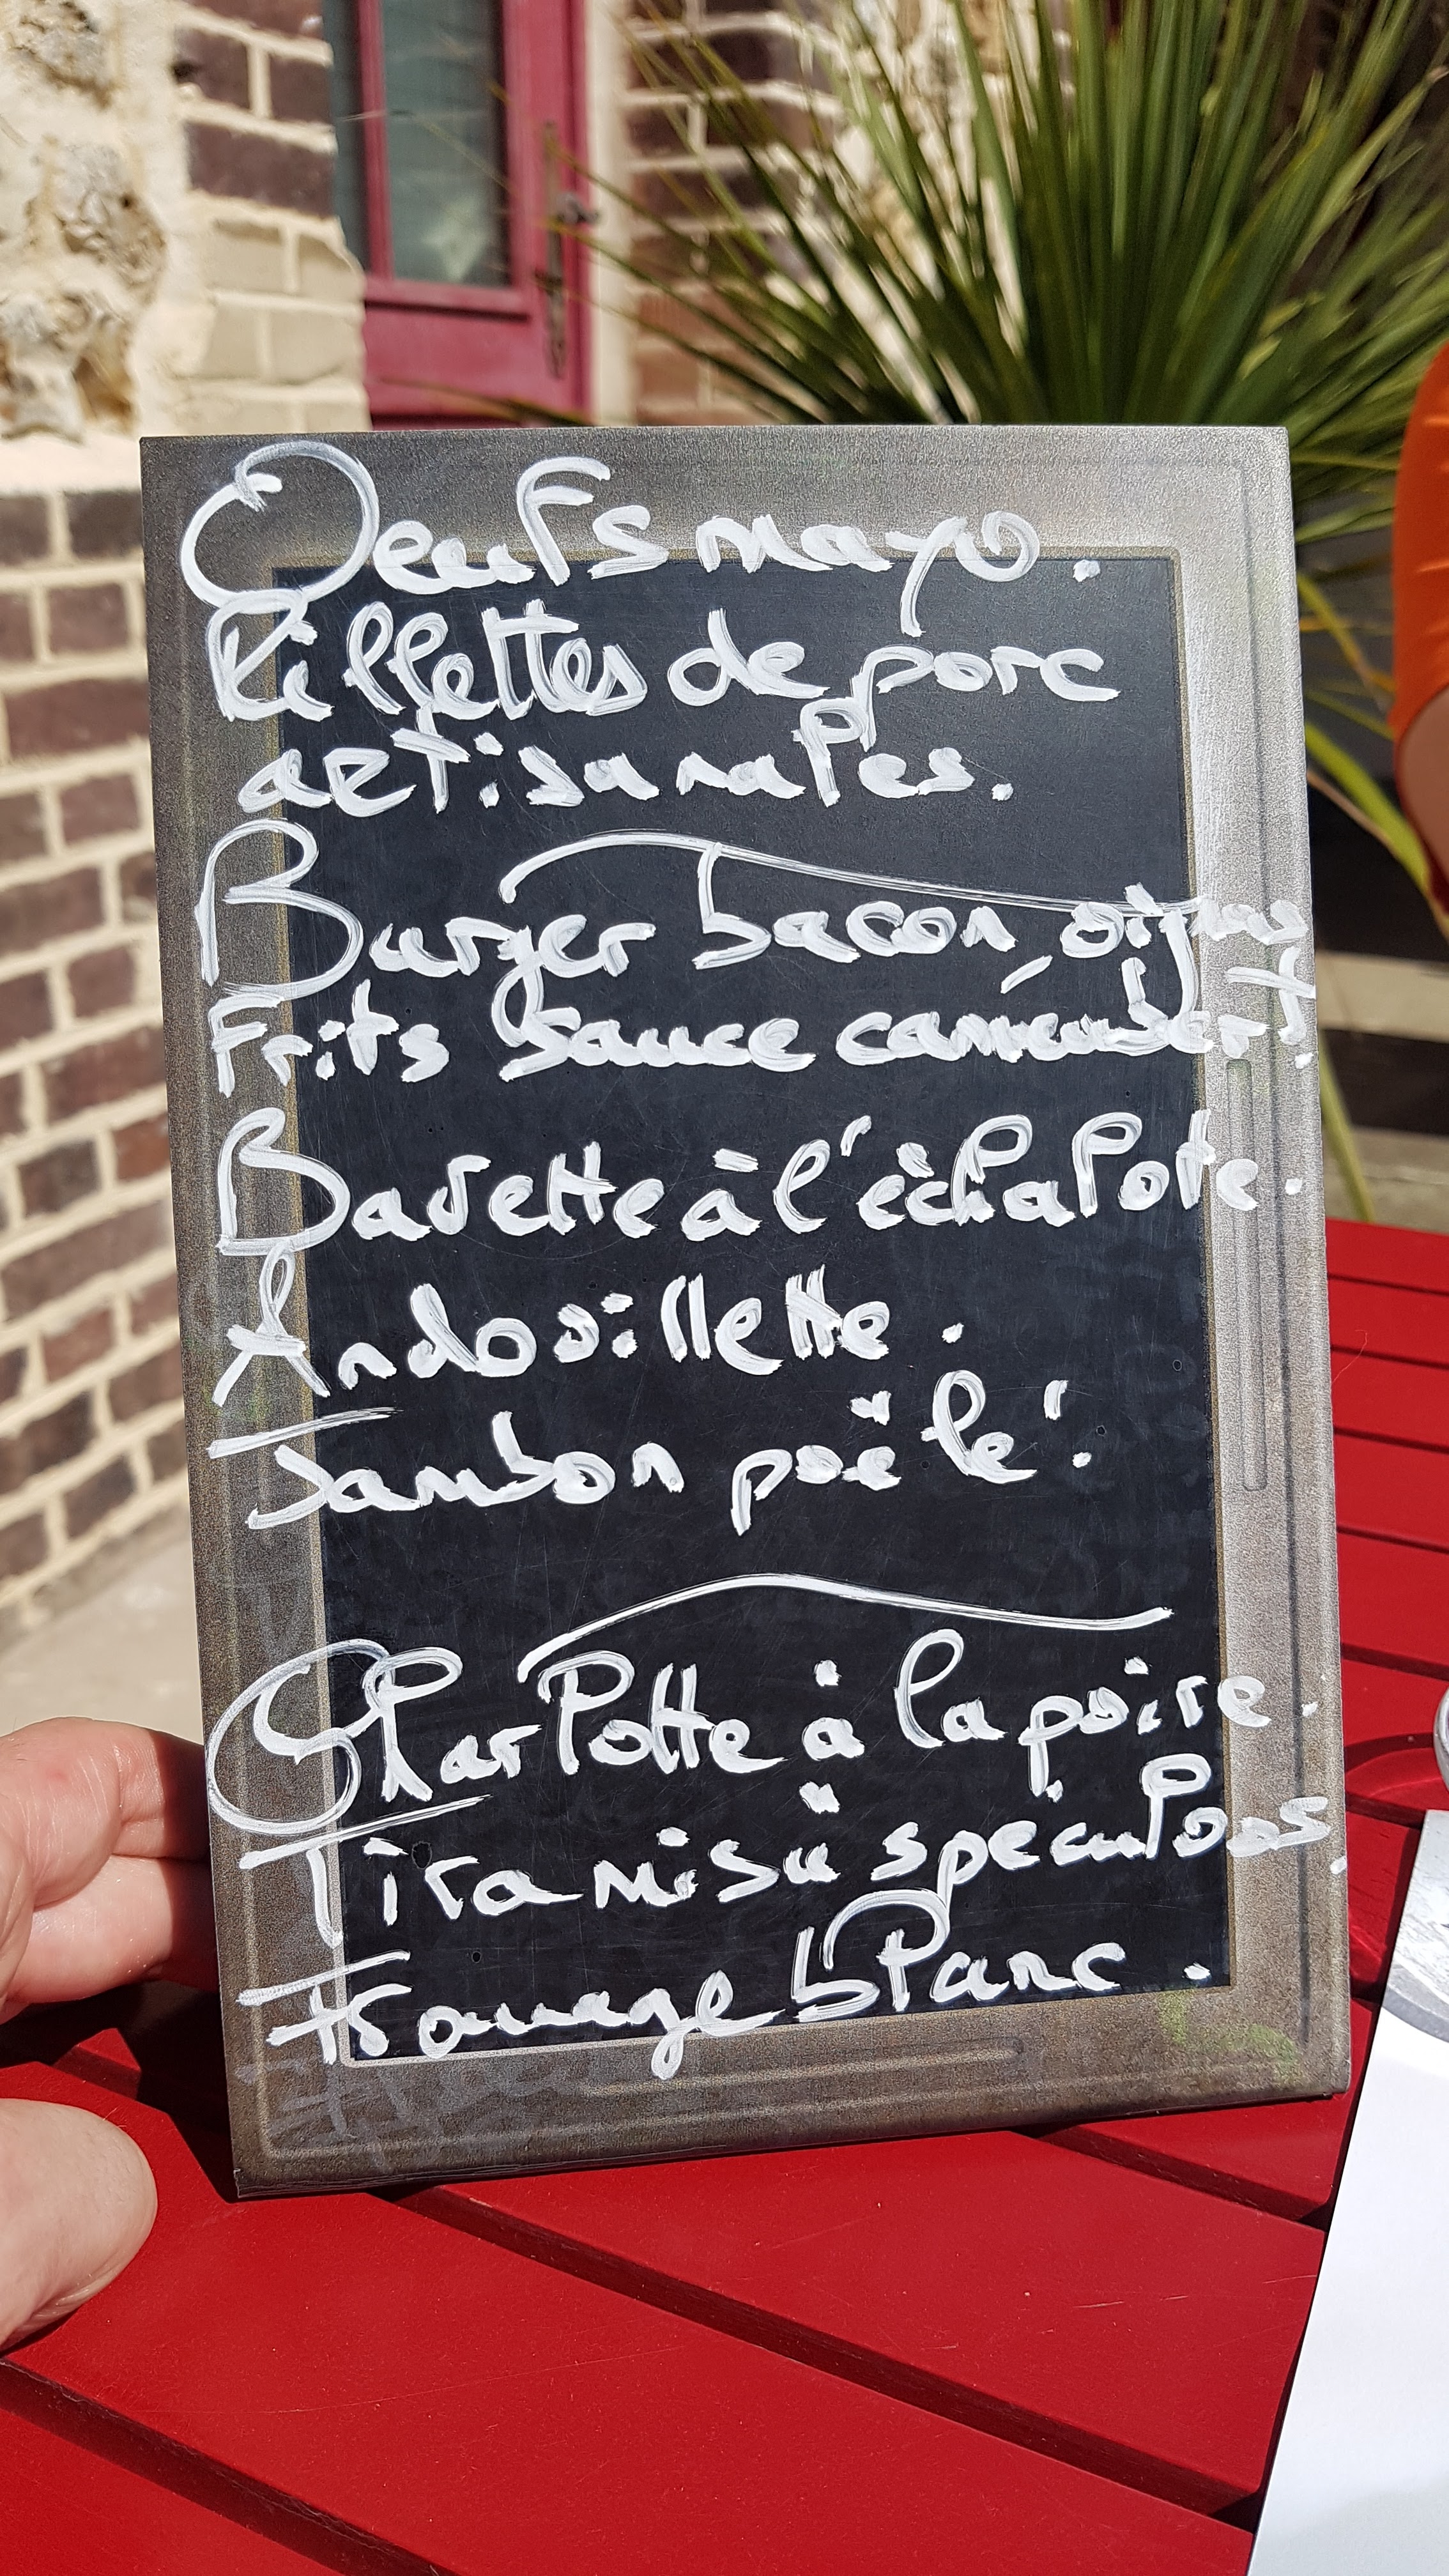 Oeufs mayo.
Rillettes de porc
artisanales.
Burger bacon, oignons
frits sauce camembert.
Bavette à l'échalote.
Andouillette.
Jambon poêlé.
Charlotte à la poire.
Tiramisu speculoos.
Fromage blanc.